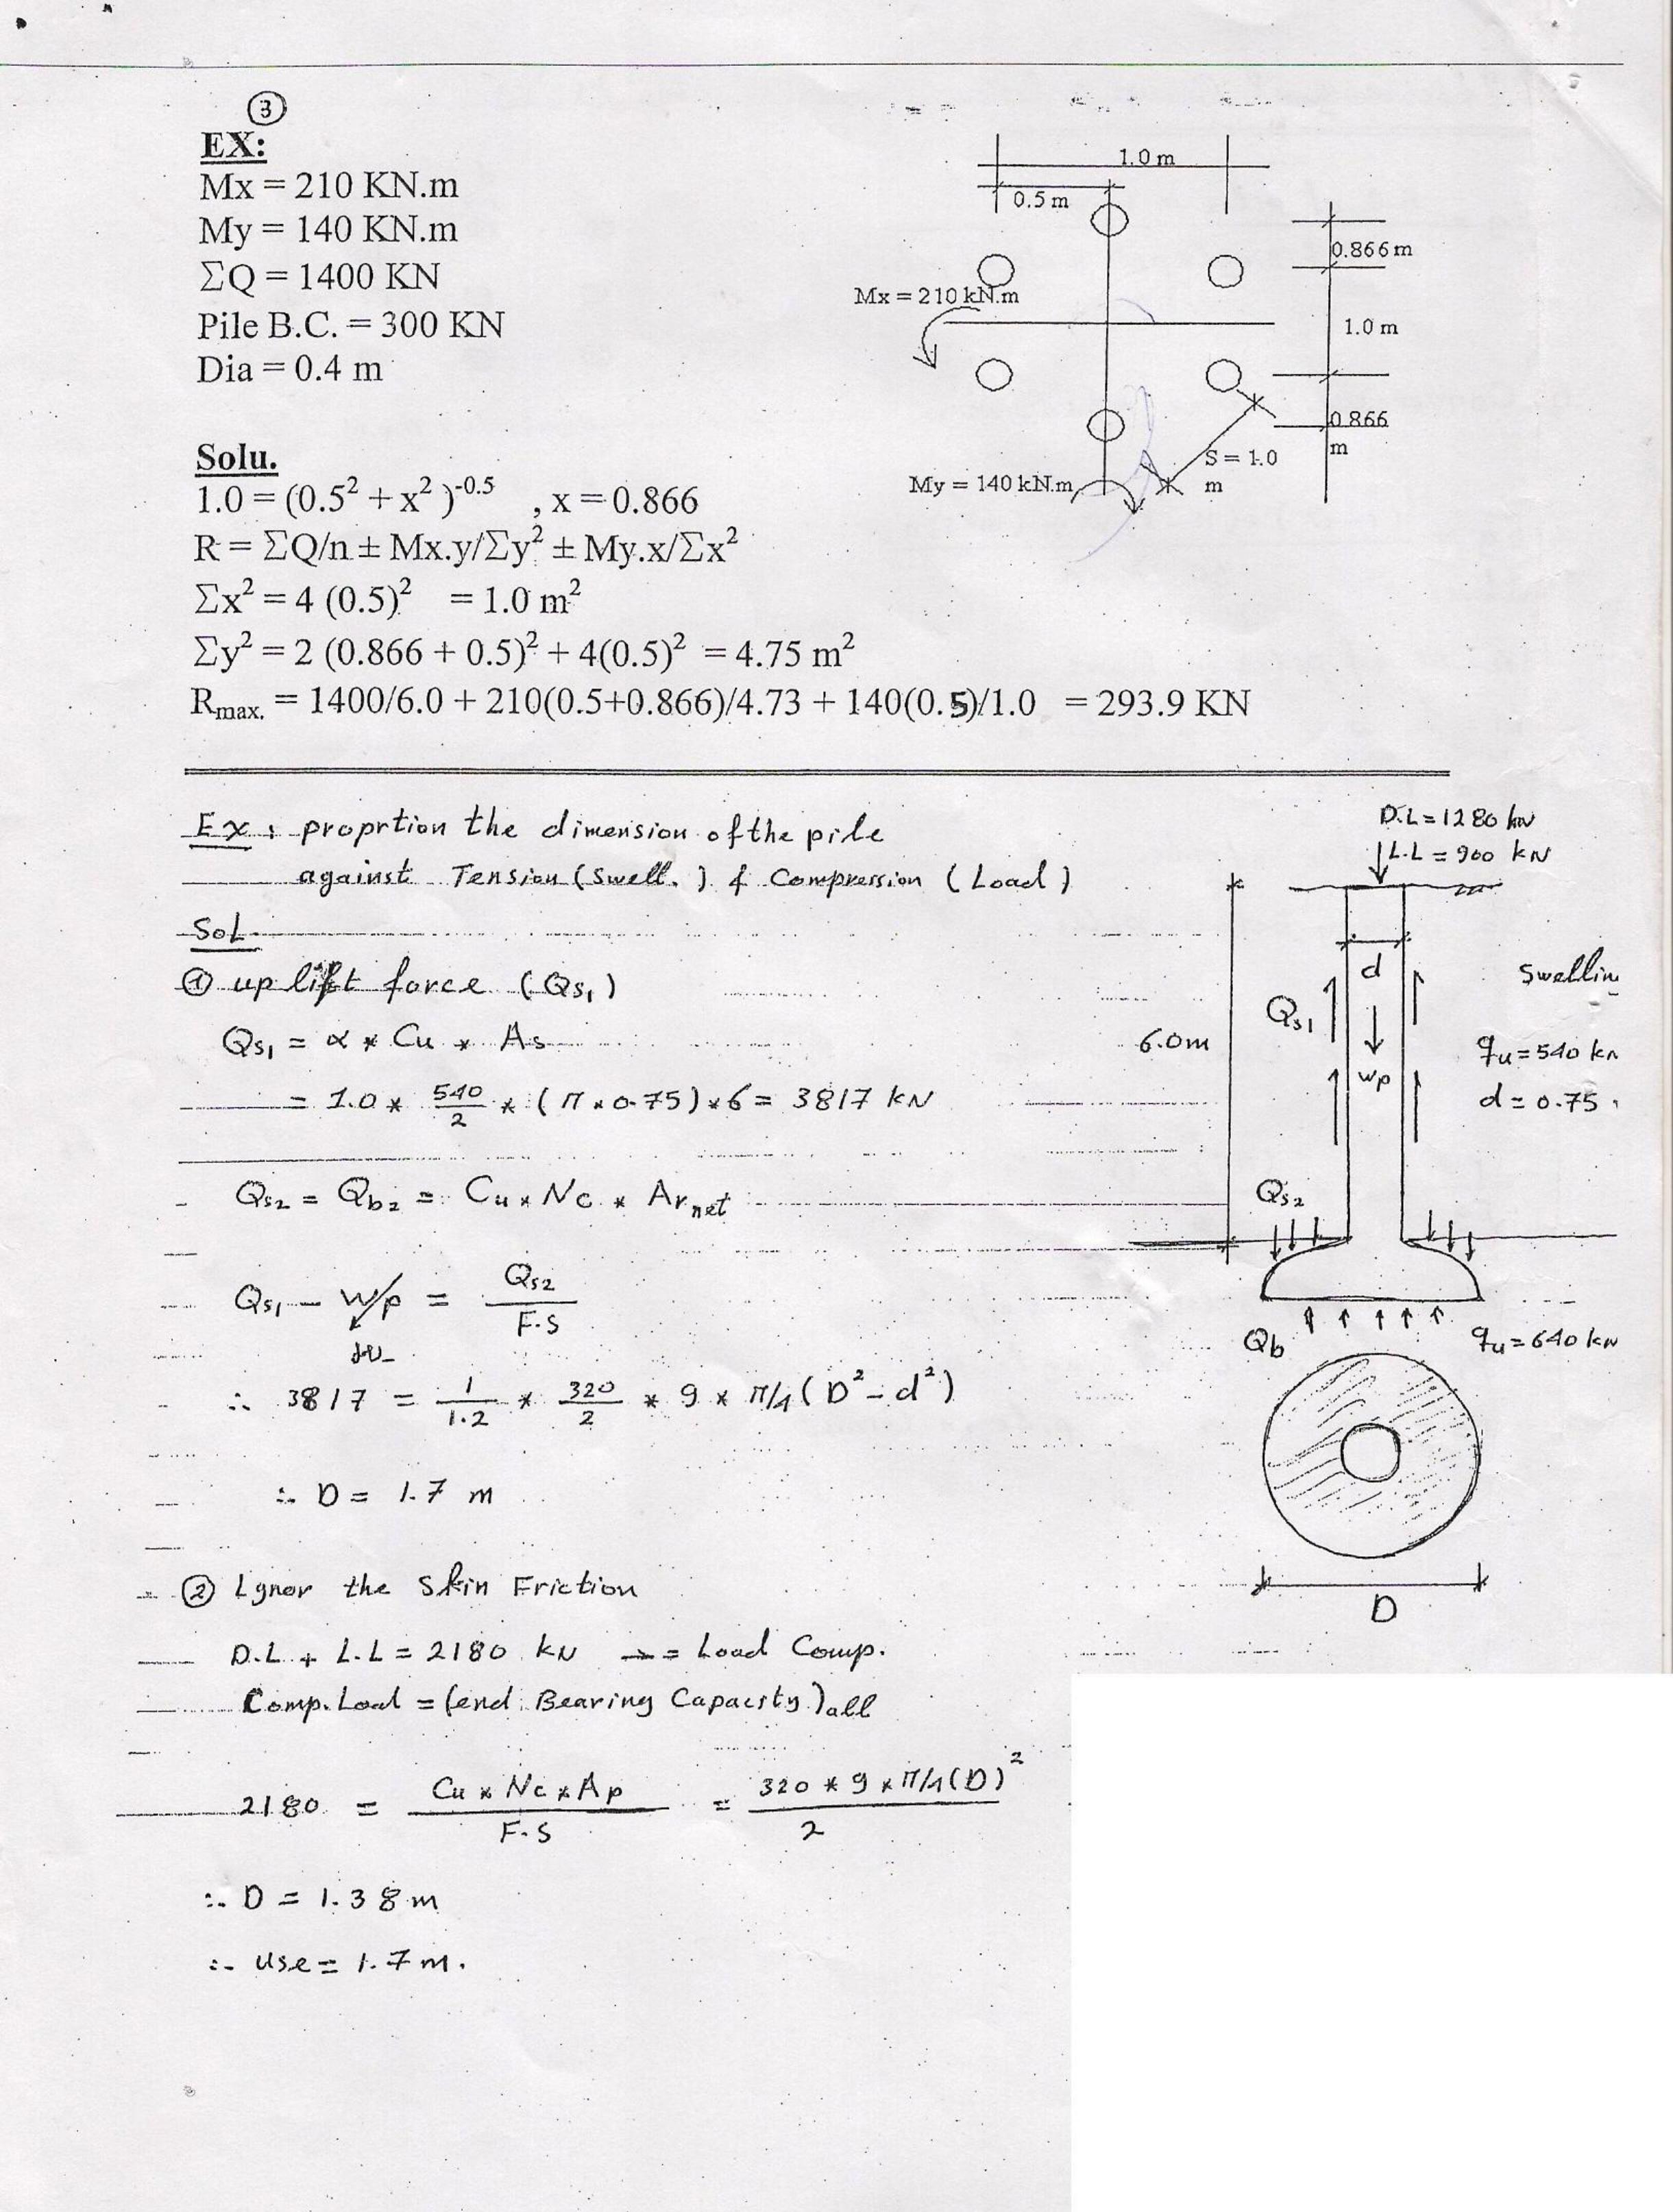 3
EX:
Mx = 210 KN.m
My = 140 KN.m
ΣQ = 1400 KN
Pile B.C. = 300 KN
Dia = 0.4 m
1.0 m
0.5 m
0.866 m
Mx = 210 kN.m
1.0 m
0.866
m
S = 1.0
m
My = 140 kN.m
Solu.
1.0 = (0.5² + x² )⁻⁰·⁵ , x = 0.866
R = ΣQ/n ± Mx.y/Σy² ± My.x/Σx²
Σx² = 4 (0.5)² = 1.0 m²
Σy² = 2 (0.866 + 0.5)² + 4(0.5)² = 4.75 m²
Rmax. = 1400/6.0 + 210(0.5+0.866)/4.73 + 140(0.5)/1.0 = 293.9 KN
Ex: proprtion the dimension of the pile
against Tension (Swell.) & Compression (Load)
Sol.
① up lift force (Qs₁)
Qs₁ = α * Cu * As
= 1.0 * 540/2 * (π * 0.75) * 6 = 3817 kN
Qs₂ = Qb₂ = Cu * Nc * Ar net
Qs₁ - Wp = Qs₂/F.S
∴ 3817 = 1/1.2 * 320/2 * 9 * π/4 (D² - d²)
∴ D = 1.7 m
② Lgnor the Skin Friction
D.L + L.L = 2180 kN → = Load Comp.
Comp. Load = (end Bearing Capacity) all
2180 = Cu * Nc * Ap / F.S = 320 * 9 * π/4 (D)² / 2
∴ D = 1.38 m
∴ use = 1.7 m.
D.L = 1280 kN
L.L = 900 kN
d
Swellin
Qs₁
6.0m
qu = 540 kn
wp
d = 0.75
Qs₂
Qb
qu = 640 kN
D